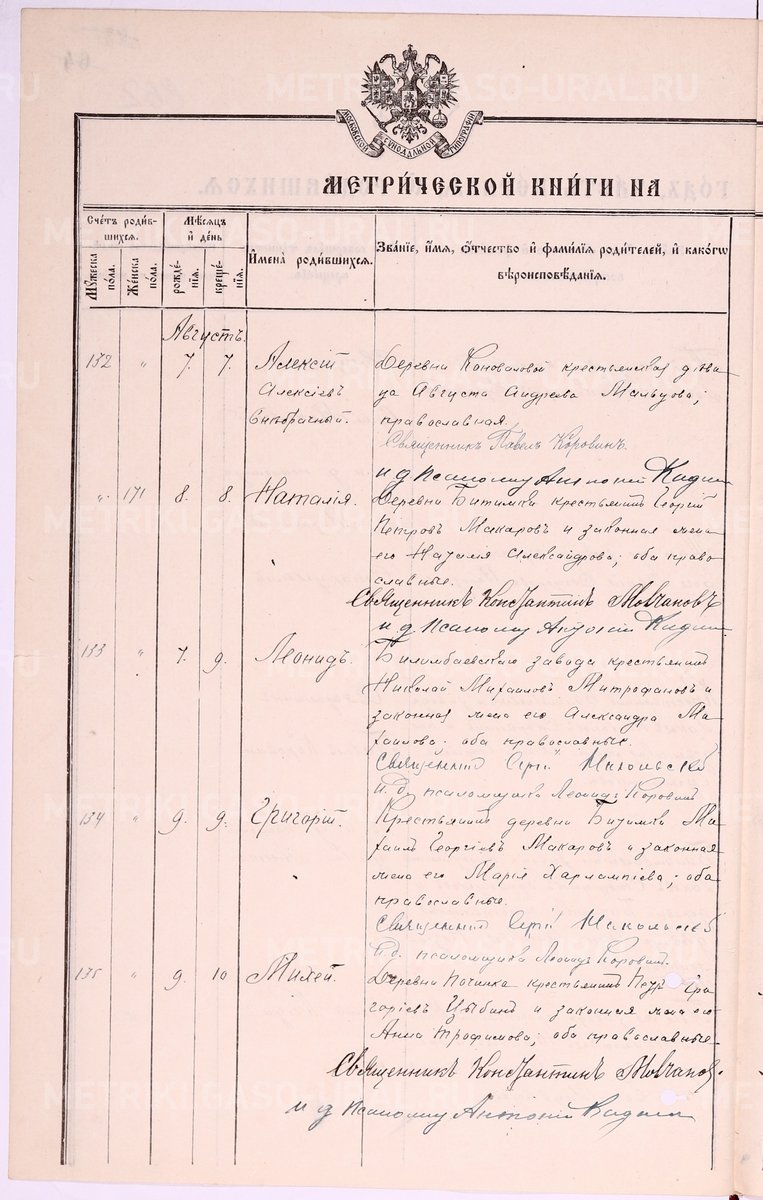 МОСКОВСКОЙ СѴНОДАЛЬНОЙ ТИПОГРАФІИ
МЕТРИЧЕСКОЙ КНИГИ НА
Счетъ родив-
шихся.
Мѣсяцъ
и день
Имена родившихся.
Званіе, имя, отчество и фамилія родителей, и какого
вѣроисповѣданія.
Мужеска
пола.
Женска
пола.
рожде-
нія.
креще-
нія.
Августъ.
132 " 7. 7. Алексій Деревни Коноваловой крестьянская дѣви-
Алексіевъ ца Августа Андреева Мальцова;
Внѣбрачный. православная.
Священникъ Павелъ Коровинъ.
и д Псаломщ Антоній
" 171 8. 8. Наталія. Деревни Битимки крестьянинъ Георгій
Петровъ Макаровъ и законная жена
его Наталія Александрова; оба право-
славные.
Священникъ Константинъ Молчановъ
и д Псаломщ Антоній
133 " 7. 9. Леонидъ. Билимбаевскаго завода крестьянинъ
Николай Михаиловъ Митрофановъ и
законная жена его Александра Ми-
хаилова; оба православные.
Священникъ Сергій Никольскій
И. д. псаломщика Леонидъ Коровинъ
134 " 9. 9. Григорій. Крестьянинъ деревни Битимки Ми-
хаилъ Георгіевъ Макаровъ и законная
жена его Марія Харлампіева; оба
православные.
Священникъ Сергій Никольскій
И. д. псаломщика Леонидъ Коровинъ.
135 " 9. 10 Михей. Деревни Починка крестьянинъ Петръ Гри-
горіевъ Цыбинъ и законная жена его
Анна Трофимова; оба православные
Священникъ Константинъ Молчановъ.
и д Псаломщ Антоній